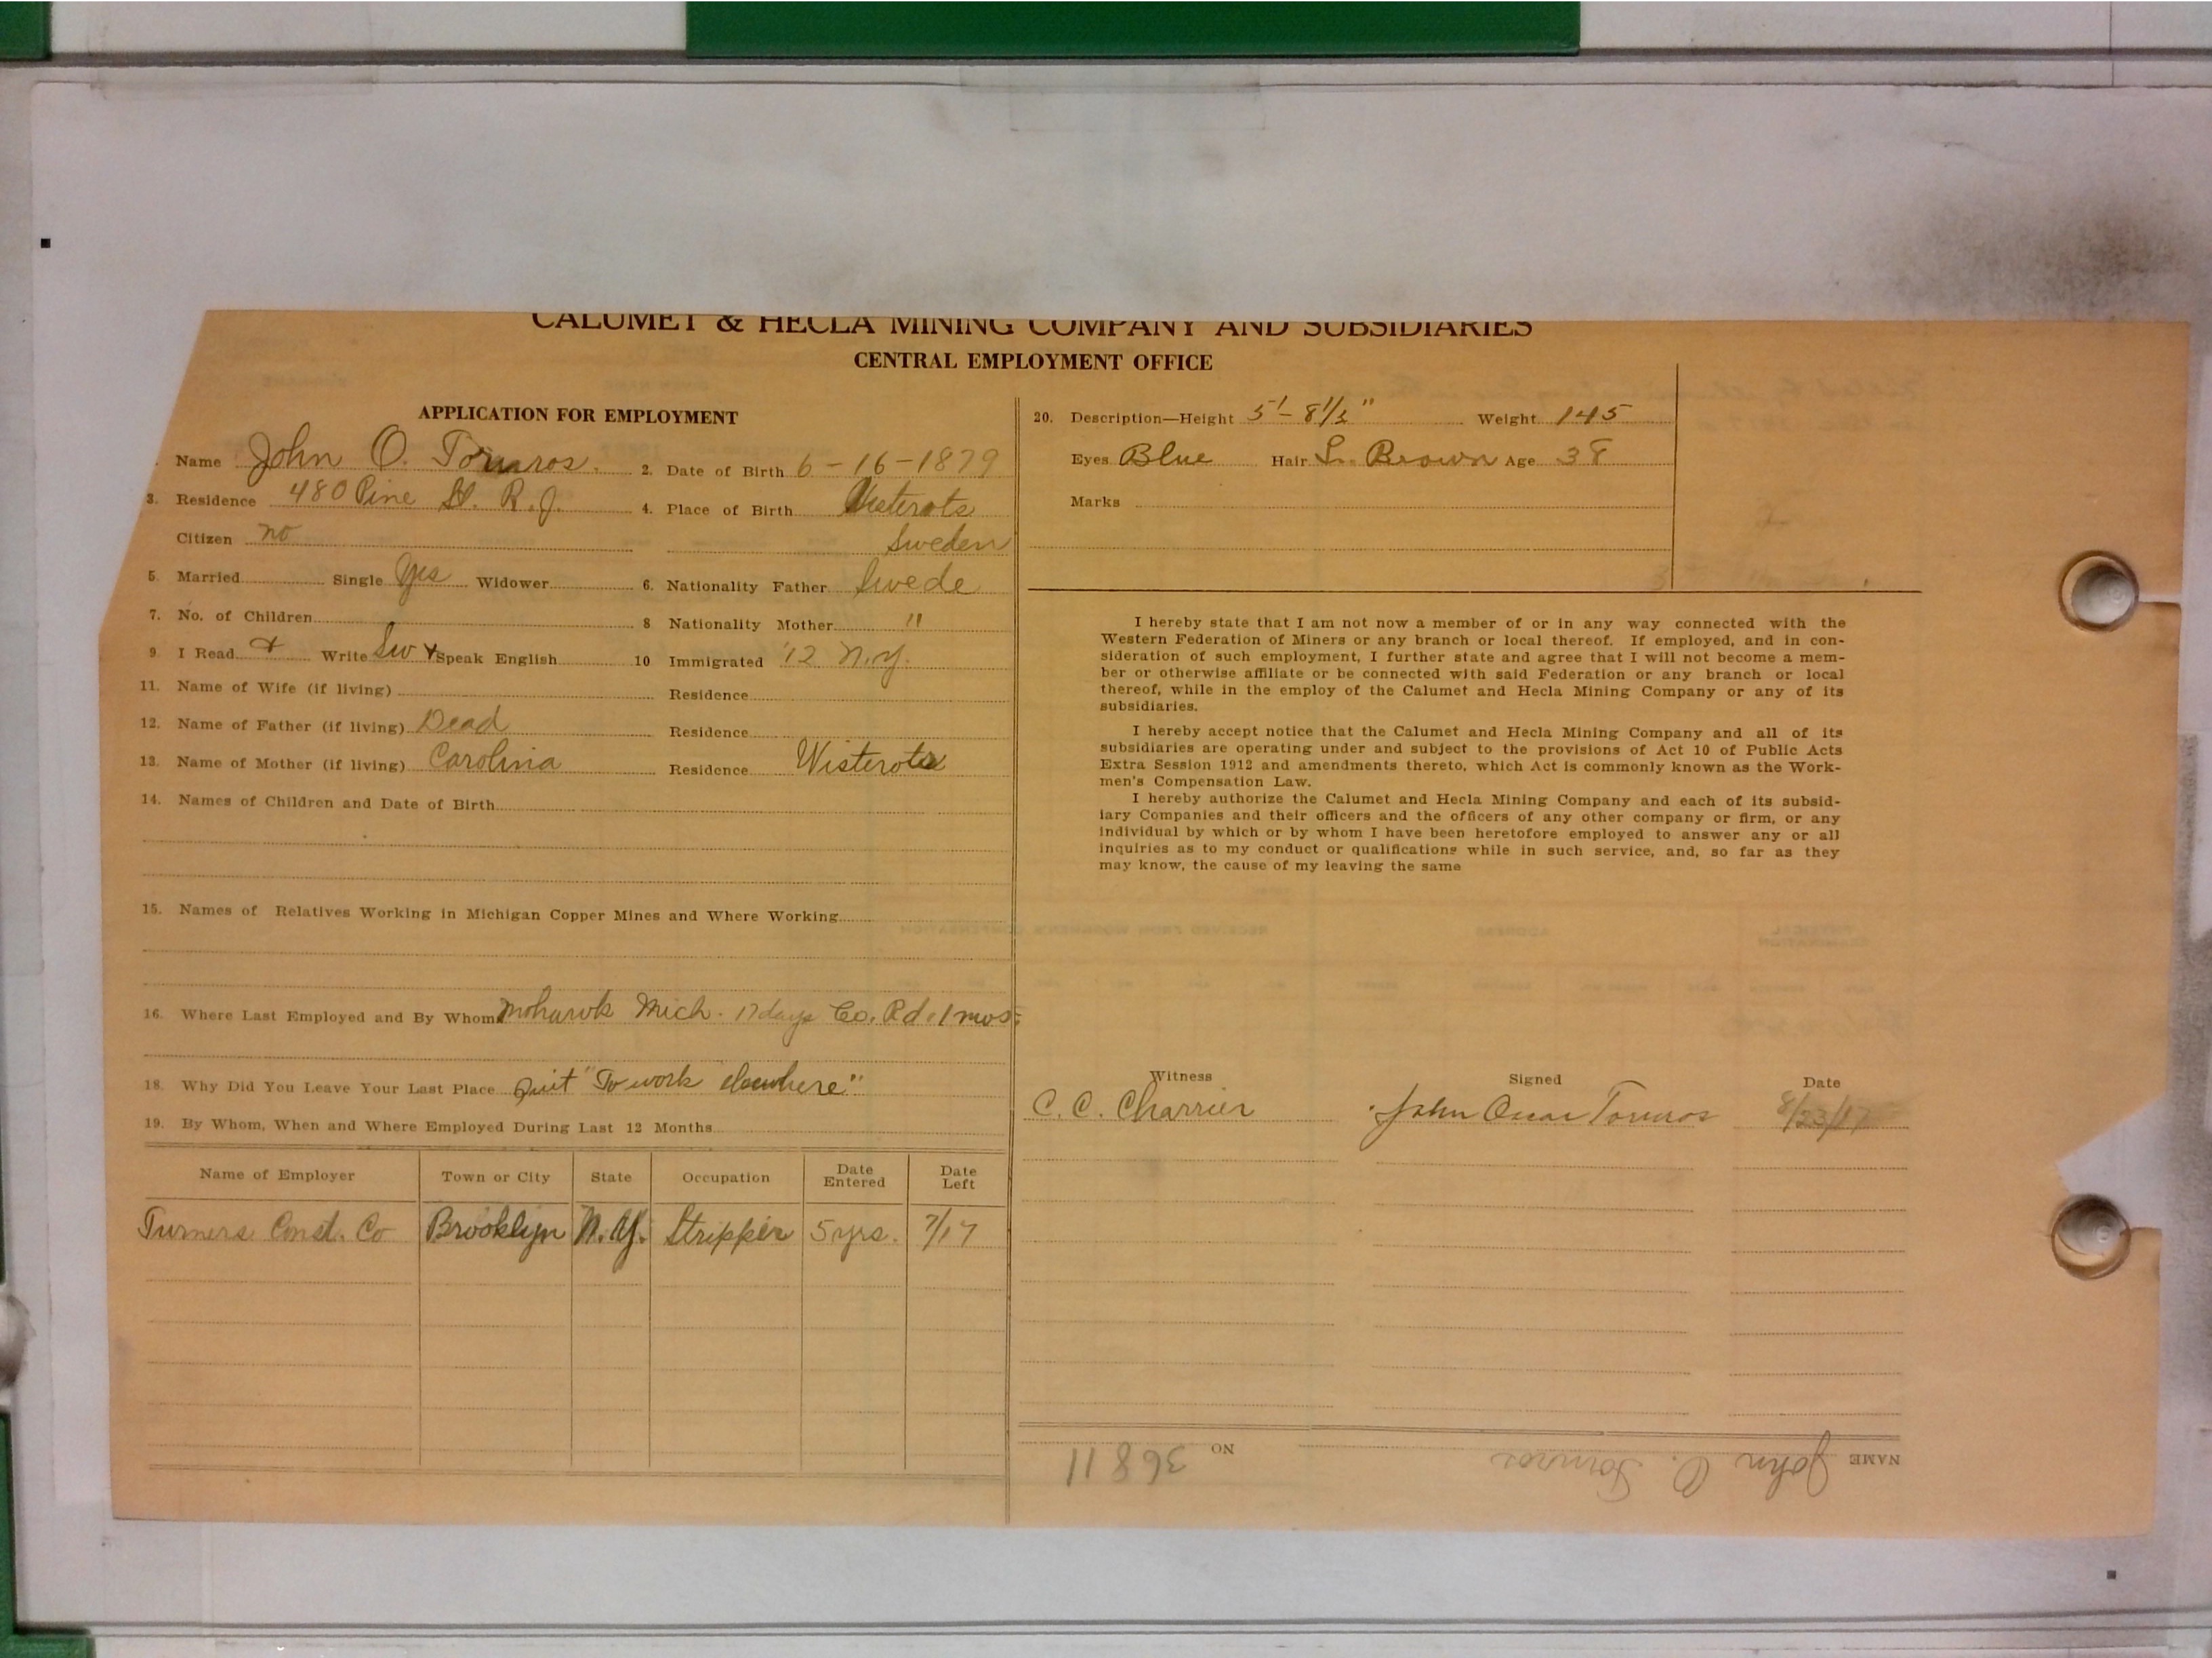 CALUMET & HECLA MINING COMPANY AND SUBSIDIARIES
CENTRAL EMPLOYMENT OFFICE
APPLICATION FOR EMPLOYMENT
Name John O. Tornros. 2. Date of Birth 6-16-1879
3. Residence 480 Pine St. R.J. 4. Place of Birth
Citizen no Sweden
5. Married Single Yes Widower 6. Nationality Father Swede
7. No. of Children 8 Nationality Mother "
9 I Read + Write Sw + Speak English 10 Immigrated '12 N.Y.
11. Name of Wife (if living) Residence
12. Name of Father (if living) Dead Residence
13. Name of Mother (if living) Carolina Residence
14. Names of Children and Date of Birth
15. Names of Relatives Working in Michigan Copper Mines and Where Working
16. Where Last Employed and By Whom Mohawk Mich. 17 days Co. Rd. 1 mos.
18. Why Did You Leave Your Last Place Quit "To work elsewhere"
19. By Whom, When and Where Employed During Last 12 Months
Name of Employer Town or City State Occupation Date Entered Date Left
Turners Const. Co Brooklyn N.Y. Stripper 5 yrs. 7/17
20. Description—Height 5'-8 1/2" Weight 145
Eyes Blue Hair L. Brown Age 38
Marks
I hereby state that I am not now a member of or in any way connected with the
Western Federation of Miners or any branch or local thereof. If employed, and in con-
sideration of such employment, I further state and agree that I will not become a mem-
ber or otherwise affiliate or be connected with said Federation or any branch or local
thereof, while in the employ of the Calumet and Hecla Mining Company or any of its
subsidiaries.
I hereby accept notice that the Calumet and Hecla Mining Company and all of its
subsidiaries are operating under and subject to the provisions of Act 10 of Public Acts
Extra Session 1912 and amendments thereto, which Act is commonly known as the Work-
men's Compensation Law.
I hereby authorize the Calumet and Hecla Mining Company and each of its subsid-
iary Companies and their officers and the officers of any other company or firm, or any
individual by which or by whom I have been heretofore employed to answer any or all
inquiries as to my conduct or qualifications while in such service, and, so far as they
may know, the cause of my leaving the same
Witness Signed Date
C. C. Charrier John Oscar Tornros 8/23/17
NAME John O. Tornros NO 36811